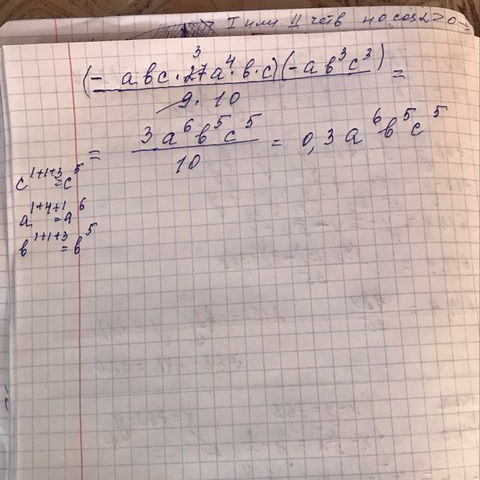 I или II четв но cos α > 0
3
(- abc · 27a⁴ · b · c)(-ab³c³) =
9 · 10
= 3a⁶b⁵c⁵ / 10 = 0,3 a⁶b⁵c⁵
c¹⁺¹⁺³ = c⁵
a¹⁺⁴⁺¹ = a⁶
b¹⁺¹⁺³ = b⁵